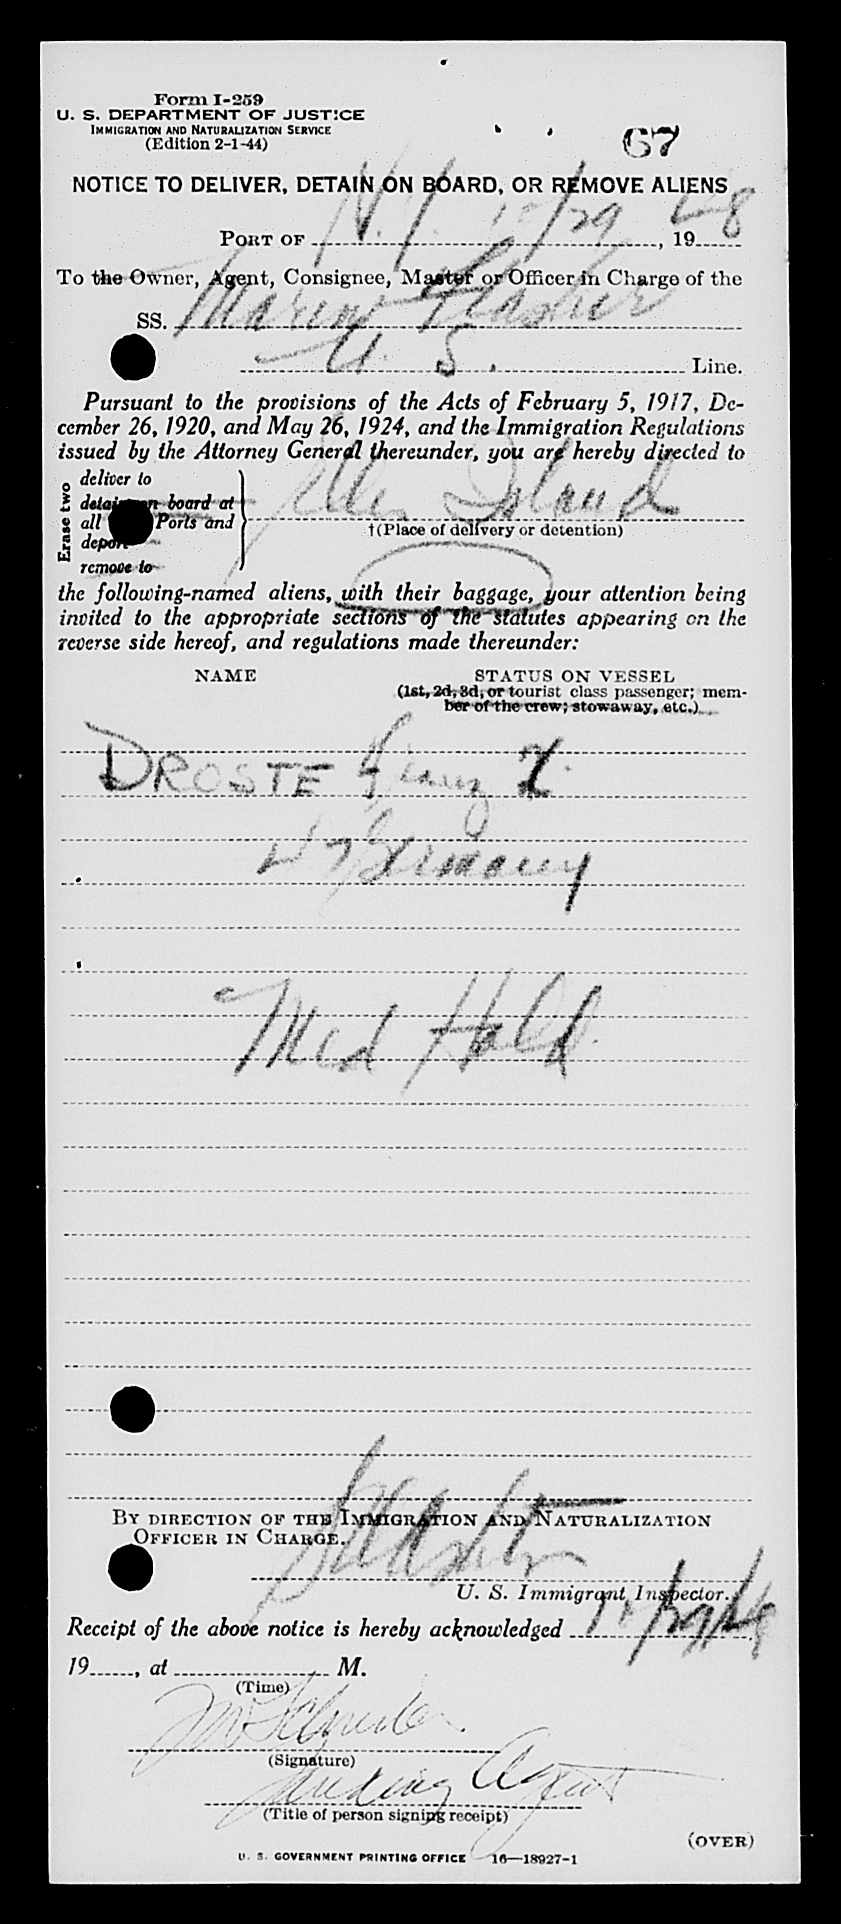 Form I-259
U. S. DEPARTMENT OF JUSTICE
IMMIGRATION AND NATURALIZATION SERVICE
(Edition 2-1-44)
67
NOTICE TO DELIVER, DETAIN ON BOARD, OR REMOVE ALIENS
PORT OF N.Y. 10/29, 1948
To the Owner, Agent, Consignee, Master or Officer in Charge of the
SS. Marine Flasher
U. S. Line.
Pursuant to the provisions of the Acts of February 5, 1917, De-
cember 26, 1920, and May 26, 1924, and the Immigration Regulations
issued by the Attorney General thereunder, you are hereby directed to
Erase two
deliver to
detain on board at
all Ports and
deport
remove to
Ellis Island
†(Place of delivery or detention)
the following-named aliens, with their baggage, your attention being
invited to the appropriate sections of the statutes appearing on the
reverse side hereof, and regulations made thereunder:
NAME STATUS ON VESSEL
(1st, 2d, 3d, or tourist class passenger; mem-
ber of the crew; stowaway, etc.)
DROSTE Franz X.
Germany
Med Hold
BY DIRECTION OF THE IMMIGRATION AND NATURALIZATION
OFFICER IN CHARGE.
U. S. Immigrant Inspector.
Receipt of the above notice is hereby acknowledged 10/29/48
19, at M.
(Time)
(Signature)
Landing Agent
(Title of person signing receipt)
(OVER)
U. S. GOVERNMENT PRINTING OFFICE 16—18927-1